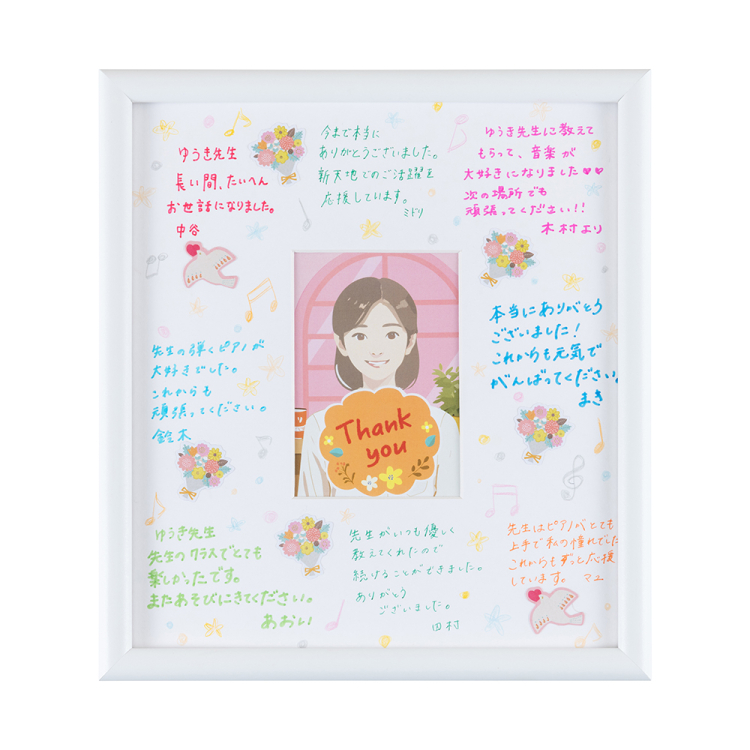 ゆうき先生
長い間、たいへん
お世話になりました。
中谷
今まで本当に
ありがとうございました。
新天地でのご活躍を
応援しています。
ミドリ
ゆうき先生に教えて
もらって、音楽が
大好きになりました♥♥
次の場所でも
頑張ってください!!
木村より
先生の弾くピアノが
大好きでした。
これからも
頑張ってください。
鈴木
Thank
you
本当にありがとう
ございました!
これからも元気で
がんばってください。
まき
ゆうき先生
先生のクラスでとても
楽しかったです。
またあそびにきてください。
あおい
先生がいつも優しく
教えてくれたので
続けることができました。
ありがとう
ございました。
田村
先生はピアノがとても
上手で私の憧れでした
これからもずっと応援
しています。 マユ